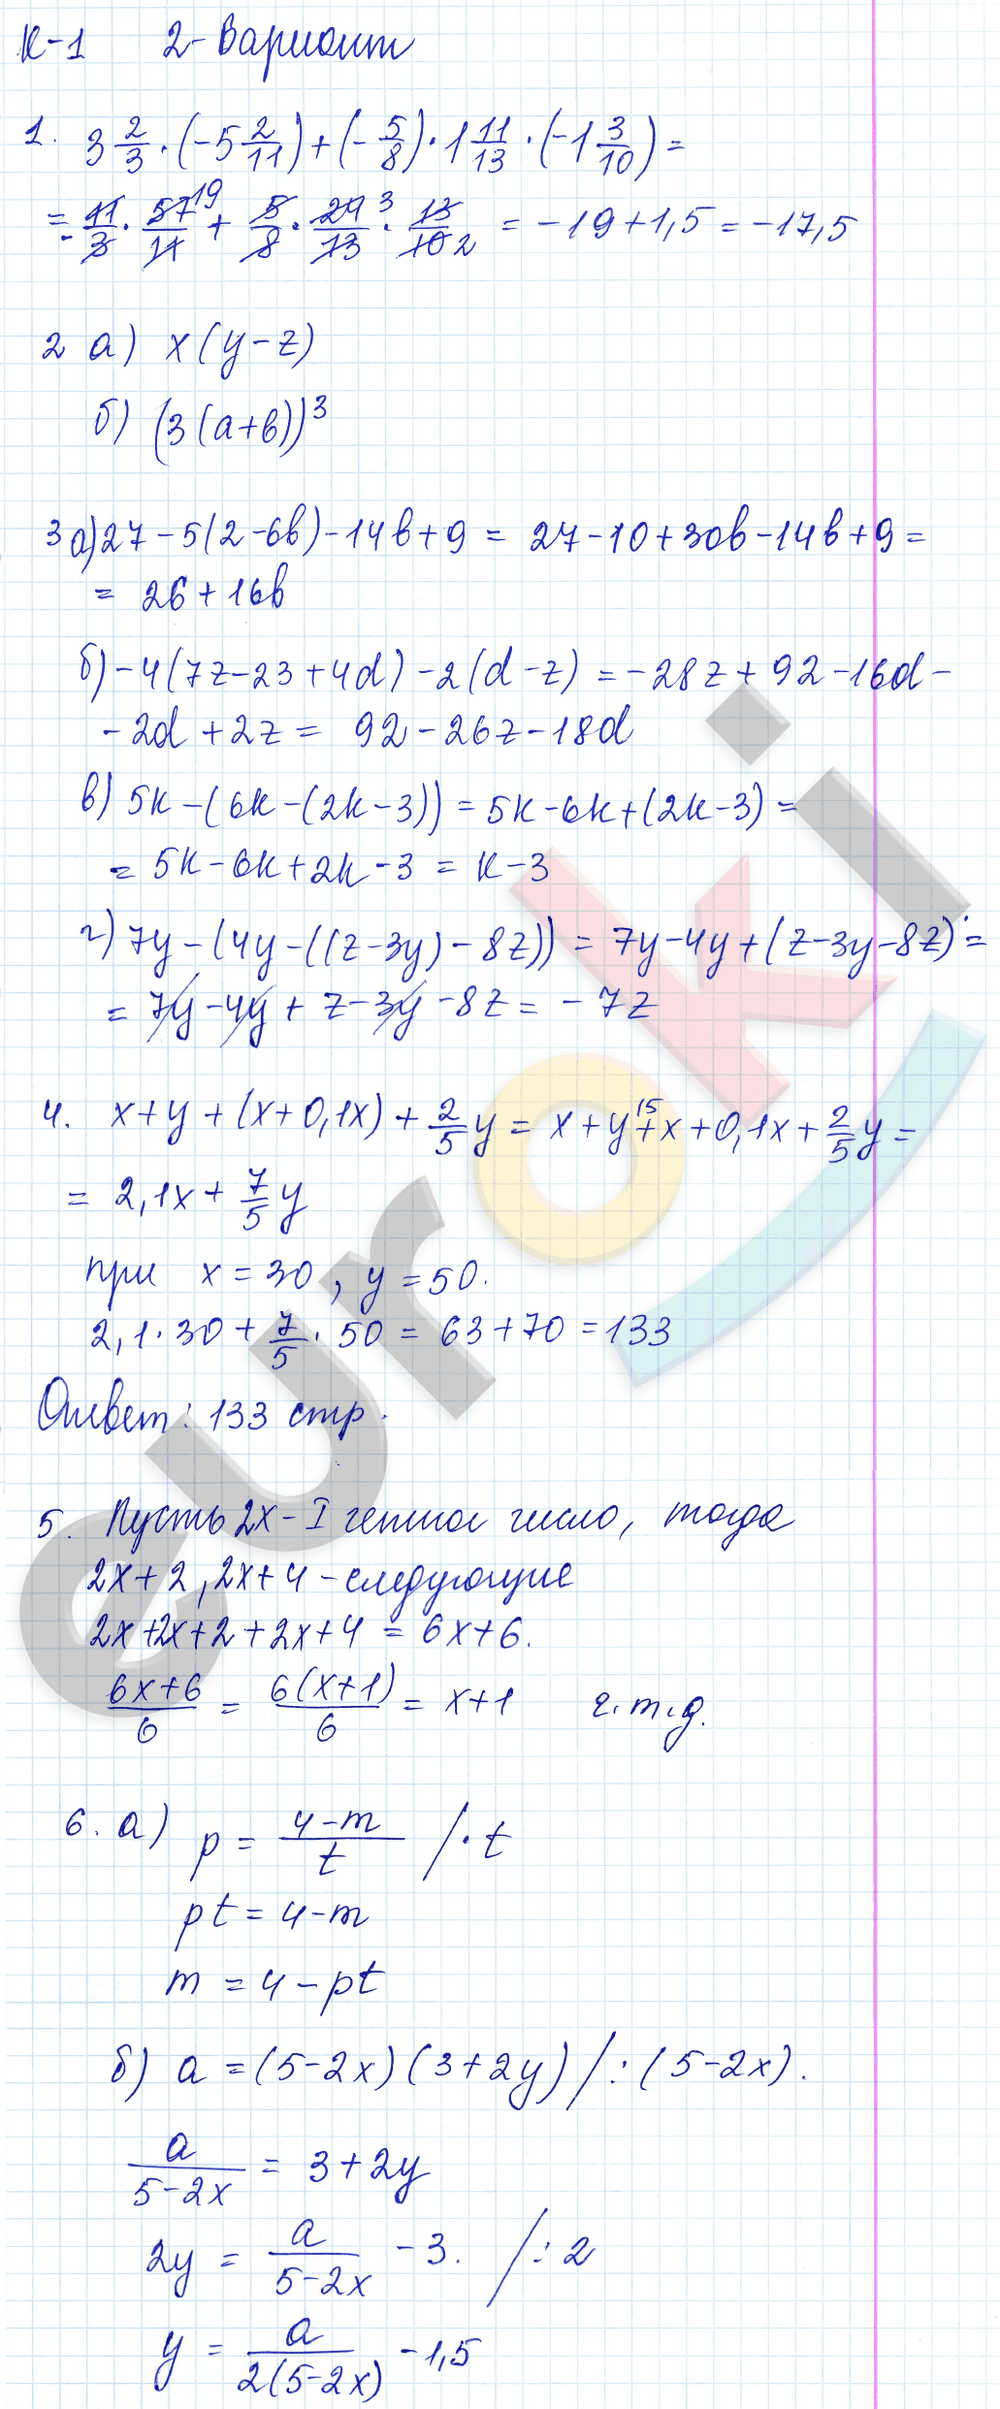 К-1 2-Вариант
1. 3 2/3 · (-5 2/11) + (-5/8) · 1 11/13 · (-1 3/10) =
= - 11/3 · 57/11 19 + 5/8 · 24/13 3 · 13/10 2 = -19 + 1,5 = -17,5
2 а) x(y-z)
б) (3(a+b))³
3 а) 27-5(2-6b)-14b+9 = 27-10+30b-14b+9 =
= 26+16b
б) -4(7z-23+4d)-2(d-z) = -28z+92-16d-
-2d+2z = 92-26z-18d
в) 5k-(6k-(2k-3)) = 5k-6k+(2k-3) =
= 5k-6k+2k-3 = k-3
г) 7y-(4y-((z-3y)-8z)) = 7y-4y+(z-3y-8z) =
= 7y-4y+z-3y-8z = -7z
4. x+y+(x+0,1x)+2/5 y = x+y+x+0,1x+2/5 y =
15
= 2,1x+7/5 y
при x=30, y=50.
2,1·30+7/5·50 = 63+70 = 133
Ответ: 133 стр.
5. Пусть 2x-I четное число, тогда
2x+2, 2x+4-следующие
2x+2x+2+2x+4 = 6x+6.
(6x+6)/6 = 6(x+1)/6 = x+1 ч.т.д.
6. а) p = (4-m)/t /·t
pt = 4-m
m = 4-pt
б) a = (5-2x)(3+2y) /:(5-2x).
a/(5-2x) = 3+2y
2y = a/(5-2x) -3. /:2
y = a/(2(5-2x)) -1,5
euroki